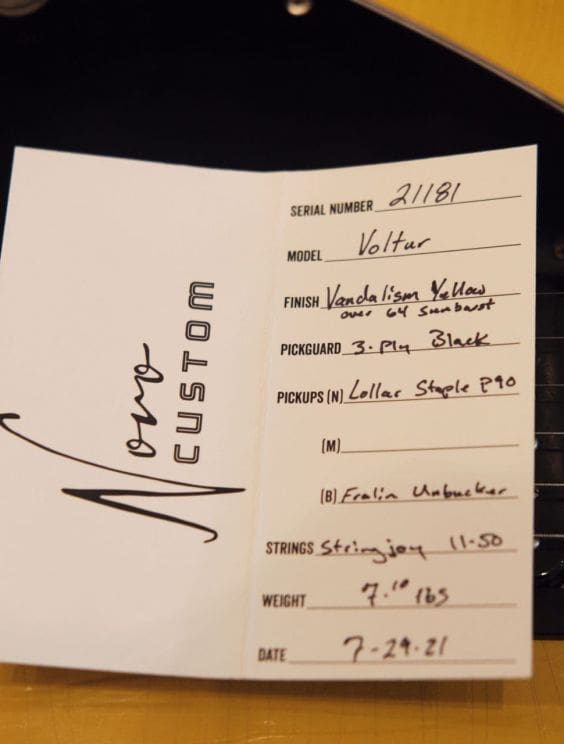 Novo
CUSTOM
SERIAL NUMBER 21181
MODEL Voltur
FINISH Vandalism Yellow
over 64 Sunburst
PICKGUARD 3-Ply Black
PICKUPS (N) Lollar Staple P90
(M)
(B) Fralin Unbucker
STRINGS Stringjoy 11-50
WEIGHT 7.10 lbs
DATE 7-29-21